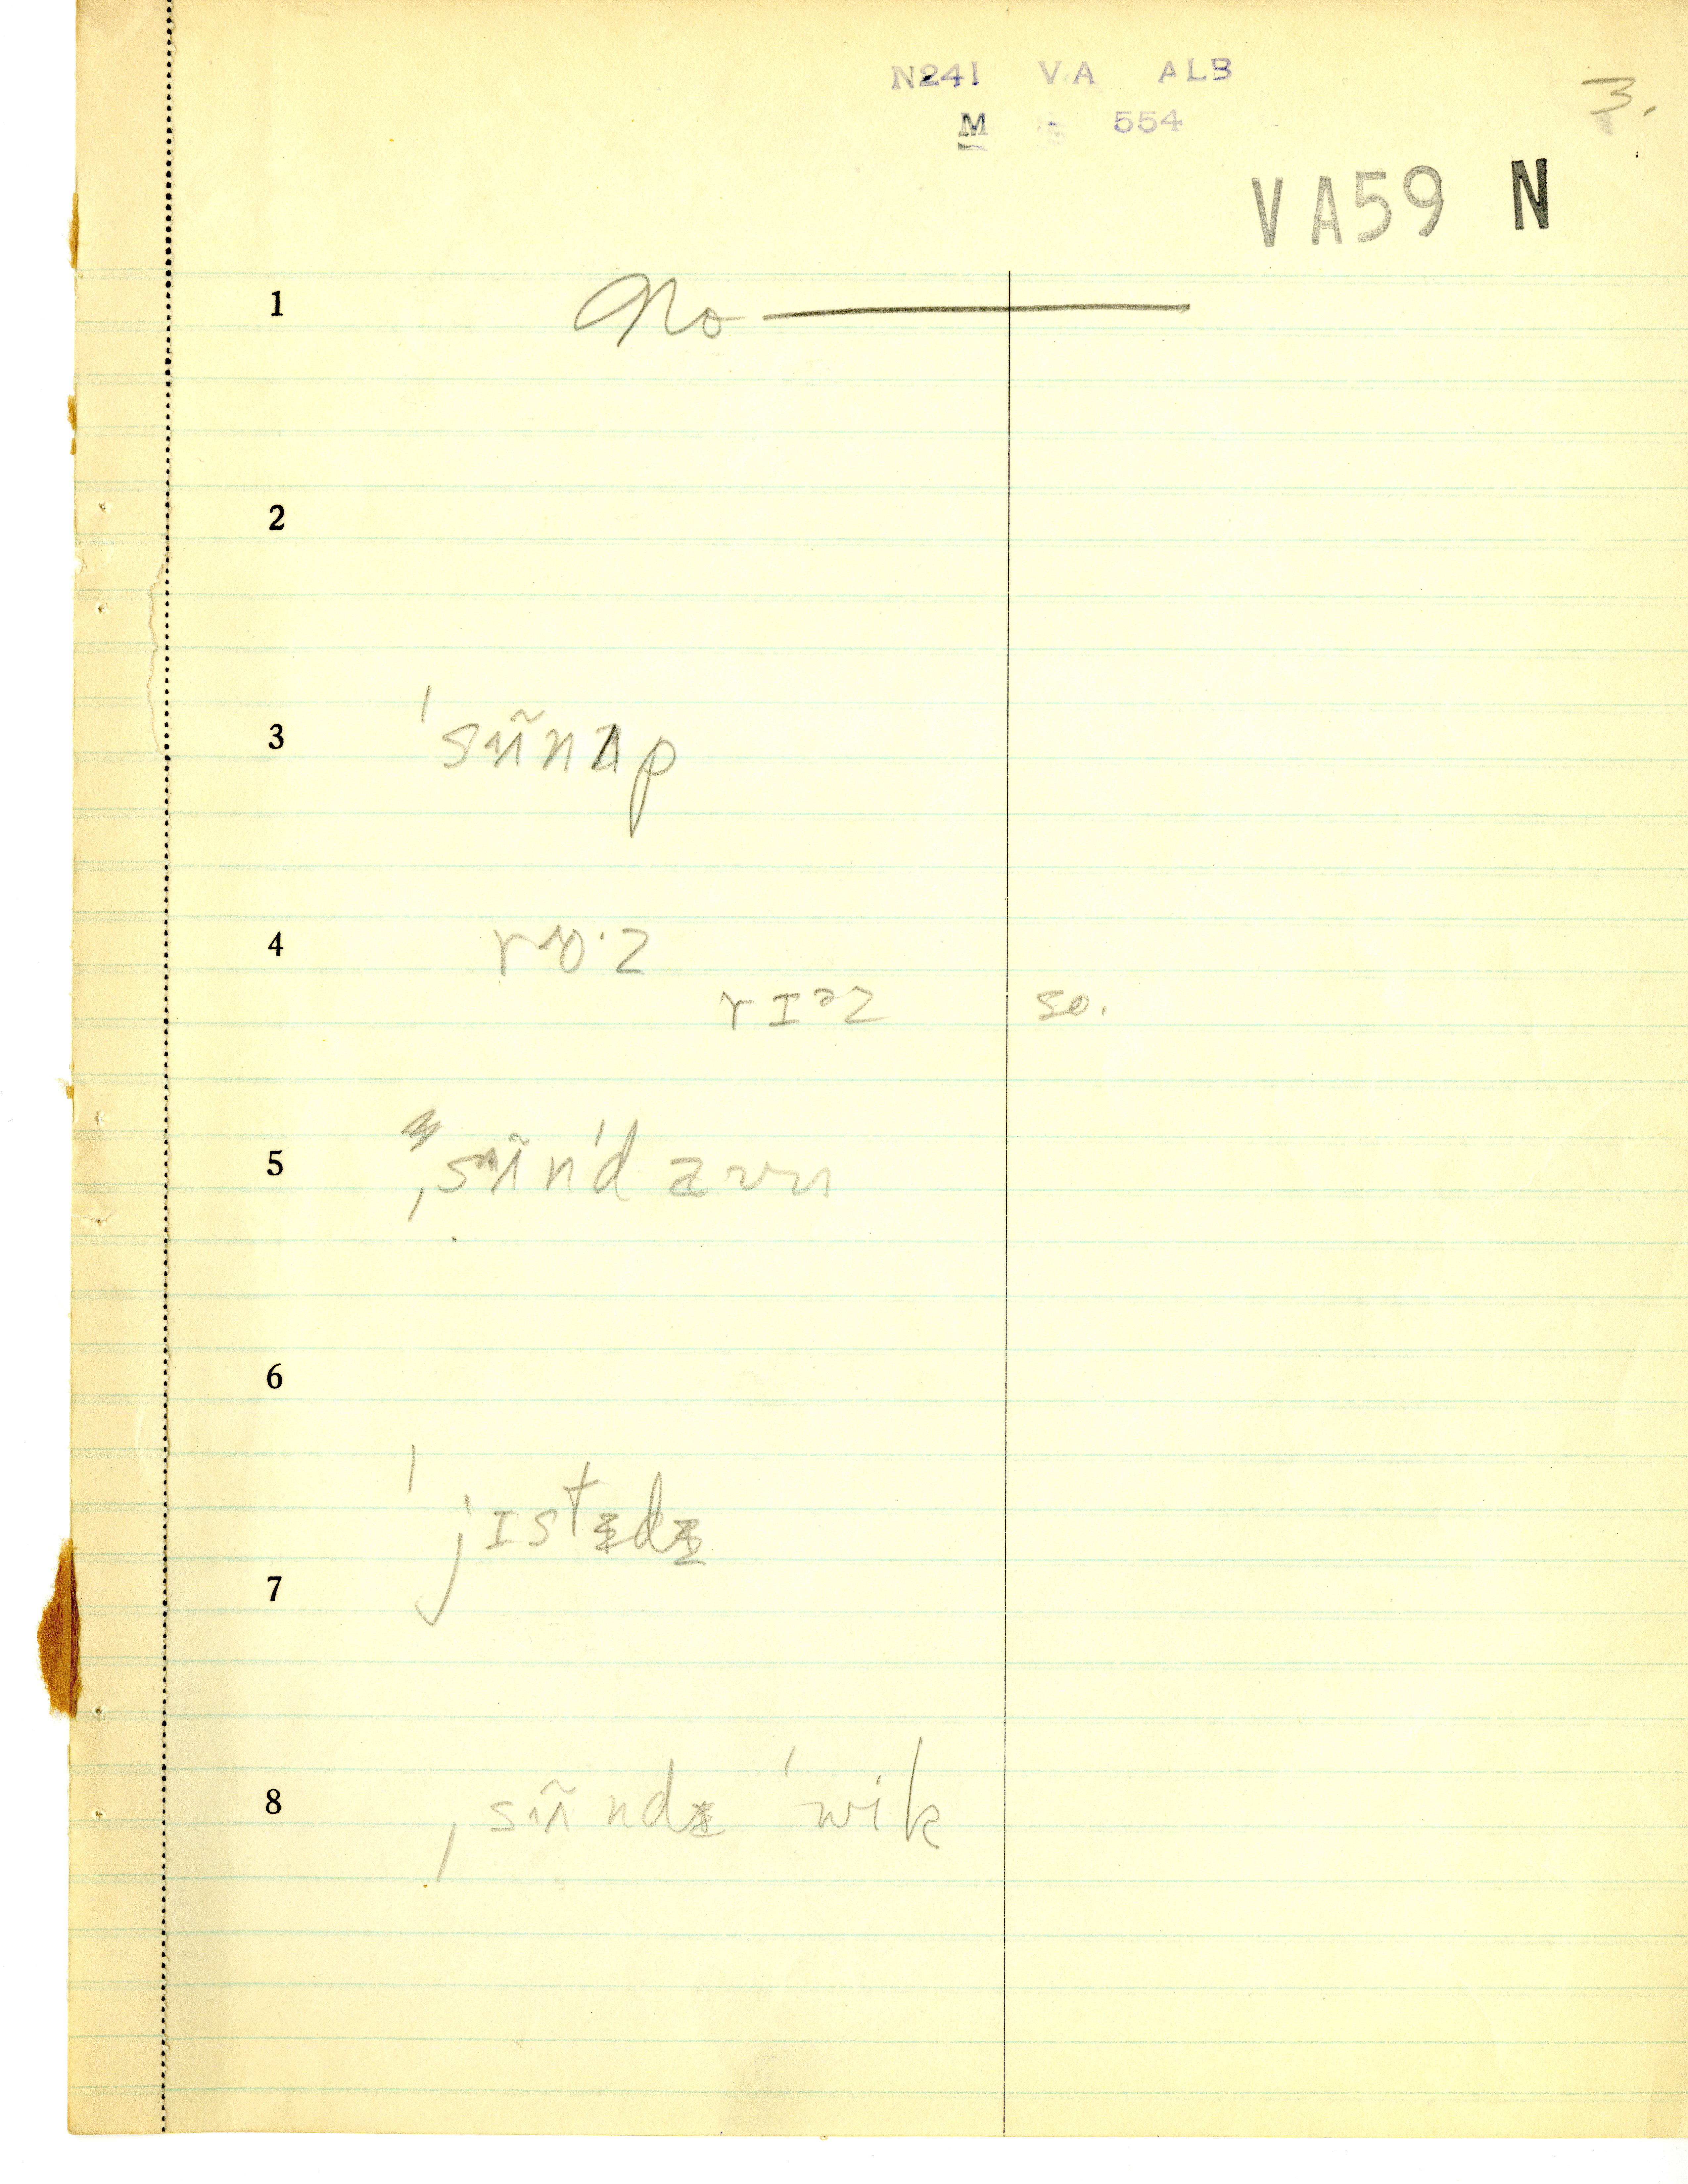 N241 VA ALB
3.
M - 554
VA59 N
1 No —
2
3 ˈsʌ̃nʌp
4 ro·z
rɪəz so.
5 ˌsʌ̃nˈdaʊn
6
ˈjɪstɨdɨ
7
8 ˌsʌ̃ndɨ ˈwik